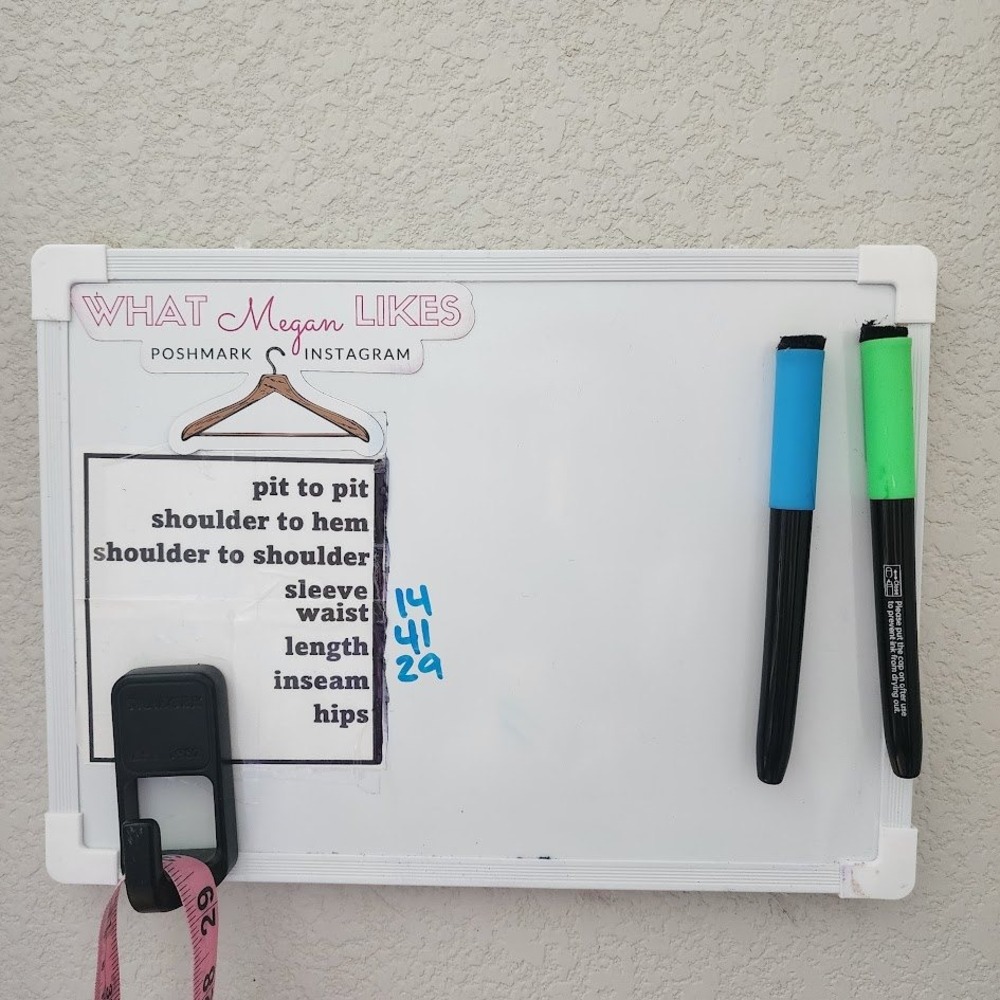 WHAT Megan LIKES
POSHMARK INSTAGRAM
pit to pit
shoulder to hem
shoulder to shoulder
sleeve
waist 14
length 41
inseam 29
hips
Please put the cap on after use
to prevent ink from drying out.
29